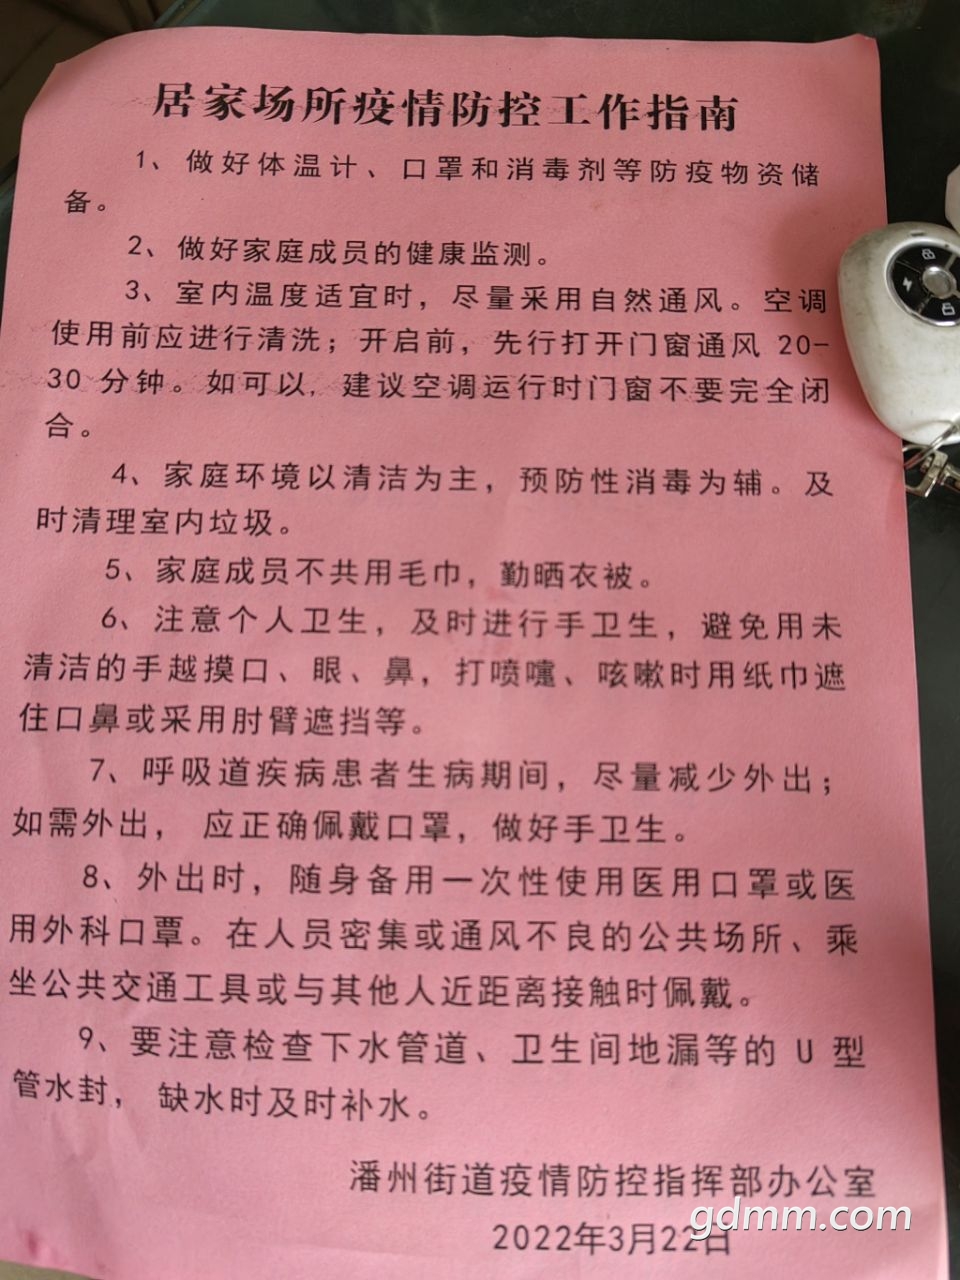 居家场所疫情防控工作指南
1、做好体温计、口罩和消毒剂等防疫物资储
备。
2、做好家庭成员的健康监测。
3、室内温度适宜时，尽量采用自然通风。空调
使用前应进行清洗；开启前，先行打开门窗通风 20-
30 分钟。如可以，建议空调运行时门窗不要完全闭
合。
4、家庭环境以清洁为主，预防性消毒为辅。及
时清理室内垃圾。
5、家庭成员不共用毛巾，勤晒衣被。
6、注意个人卫生，及时进行手卫生，避免用未
清洁的手越摸口、眼、鼻，打喷嚏、咳嗽时用纸巾遮
住口鼻或采用肘臂遮挡等。
7、呼吸道疾病患者生病期间，尽量减少外出；
如需外出， 应正确佩戴口罩，做好手卫生。
8、外出时，随身备用一次性使用医用口罩或医
用外科口覃。在人员密集或通风不良的公共场所、乘
坐公共交通工具或与其他人近距离接触时佩戴。
9、要注意检查下水管道、卫生间地漏等的 U 型
管水封， 缺水时及时补水。
潘州街道疫情防控指挥部办公室
2022年3月22日
gdmm.com